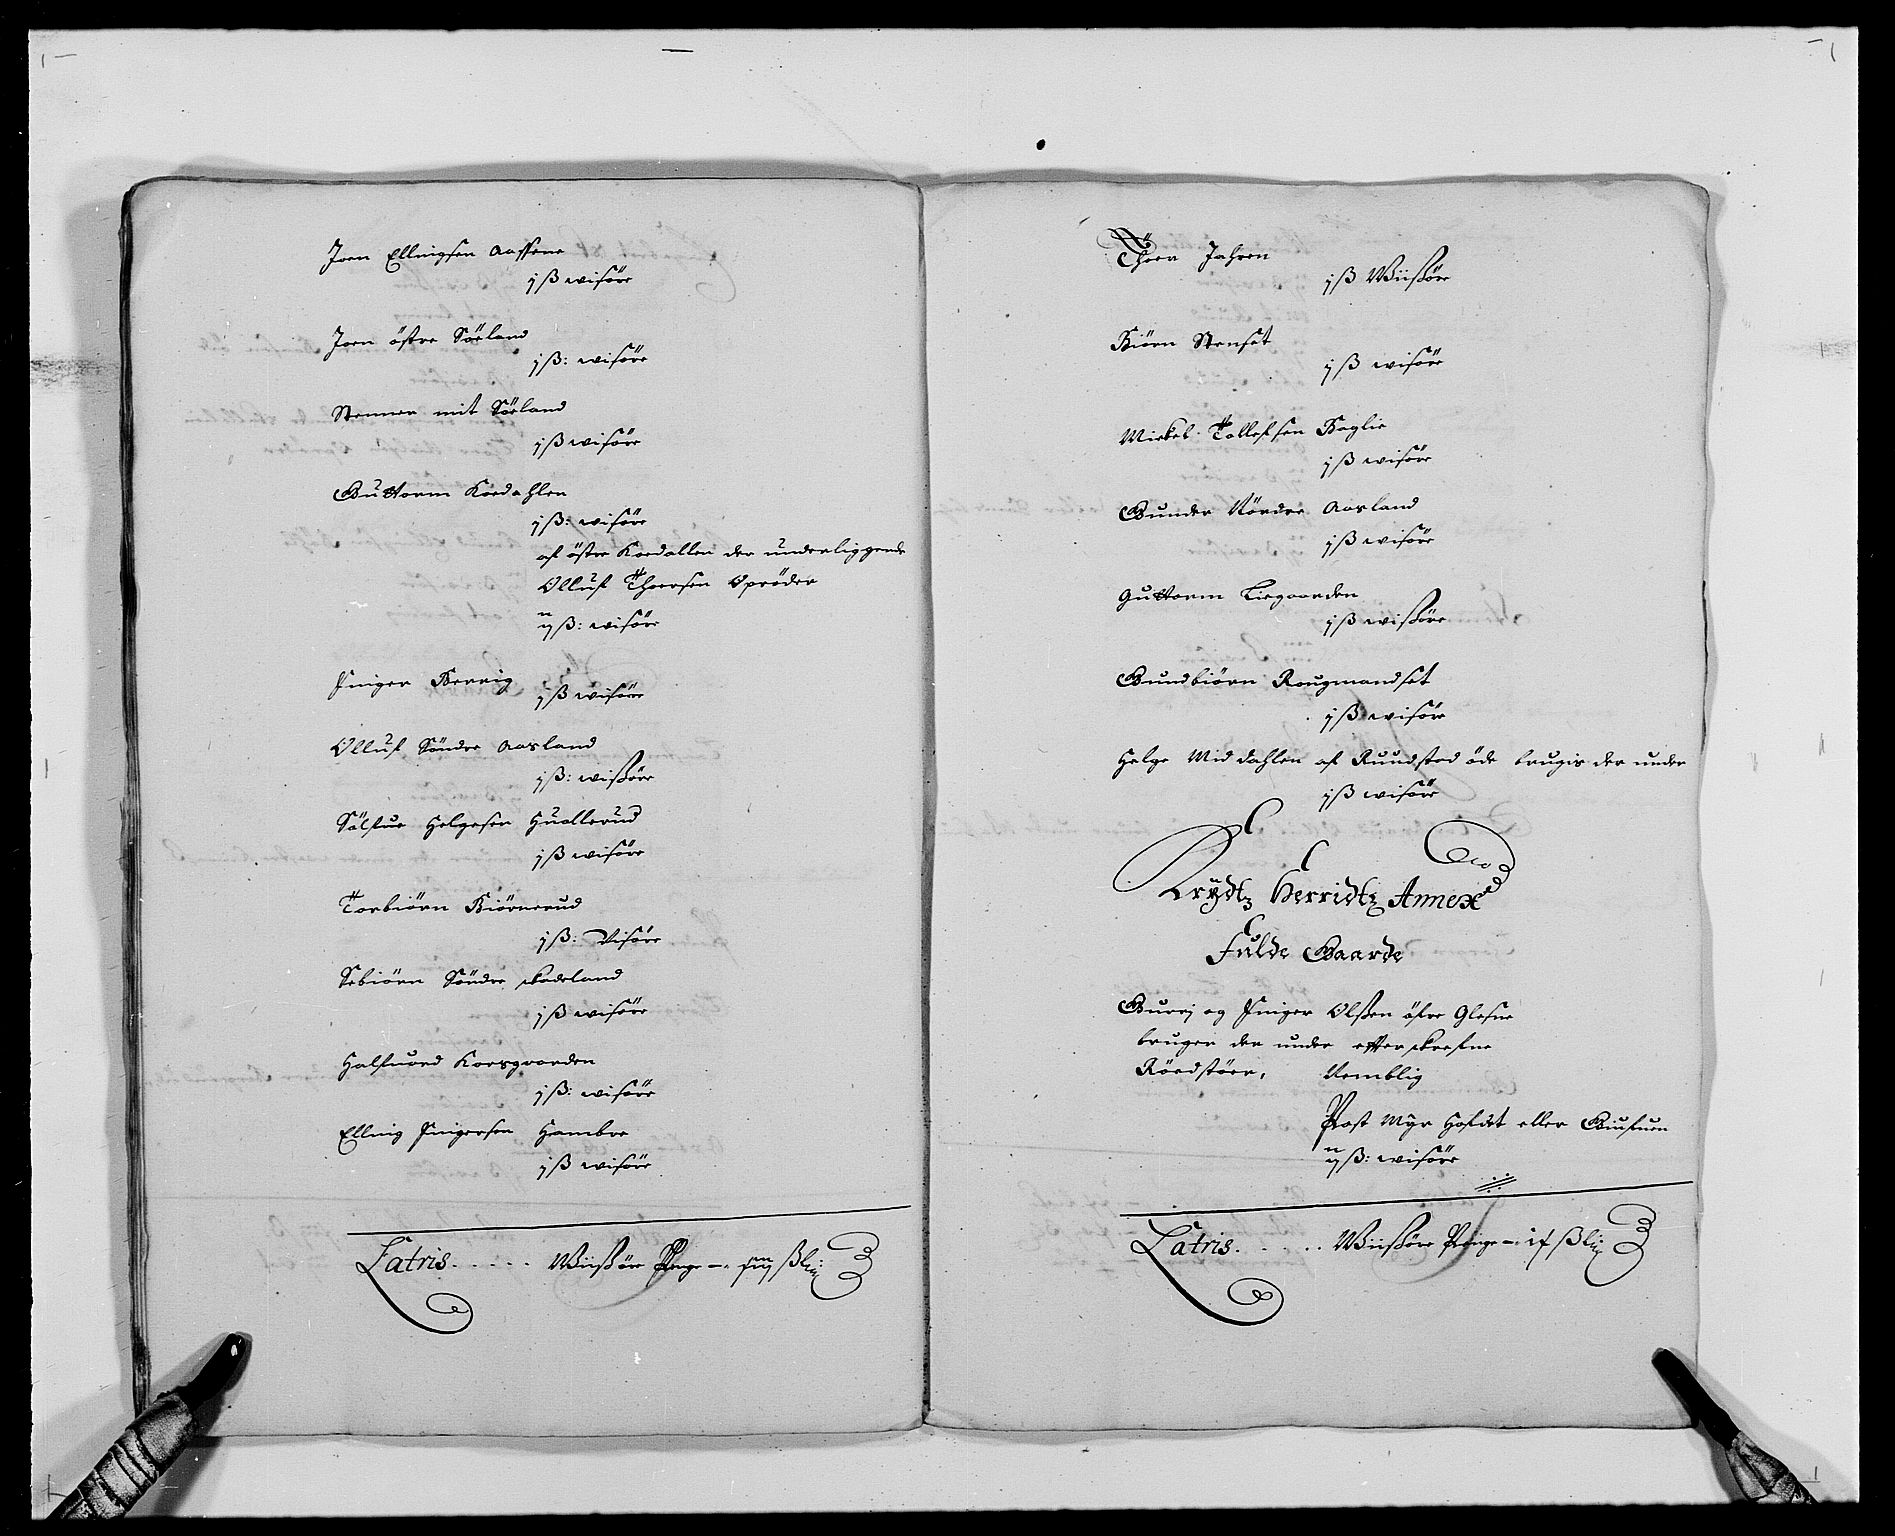 Joen Ellingsen Aassene
j ß wisöre
Joen östre Söeland
j ß: wisöre
Stenner mit Söeland
j ß wisöre
Guttorm Koedahlen
j ß: wisöre
af östre Koedallen der underliggende
Olluf Thoersen Opröder
ij ß: wisöre
Finger Berrig
j ß wisöre
Olluf Söndre Aasland
j ß: wißöre
Sölfue Helgesen Huallerud
j ß wisöre
Torbiörn Biörnerud
j ß: Visöre
Sebiörn Söndre Kadeland
j ß wisöre
Halfuord Korsgaarden
j ß: wisöre
Elling Fingersen Hambre
j ß wisöre
Latris . . . . . Wiißöre Penge
Thoer Jahren
j ß Wiißöre
Biörn Stenset
j ß wisöre
Mickel Tollefsen Baglie
j ß wisöre
Gunder Nördre Aasland
j ß wisöre
Guttorm Liegaarden
j ß wißöre
Gundbiörn Rougmandset
j ß wisöre
Helge Middahlen af Ruundstad öde brugis der under
j ß wisöre
Krydtz Herridtz Annex
Fulde Gaarde
Guri og Finger Olßen öfre Glesne
bruger der under efterskrefne
Rödstöer, Nemblig
Post Myr Hofdet eller
ij ß: wisöre
Latris . . . . . Wiißöre Penge